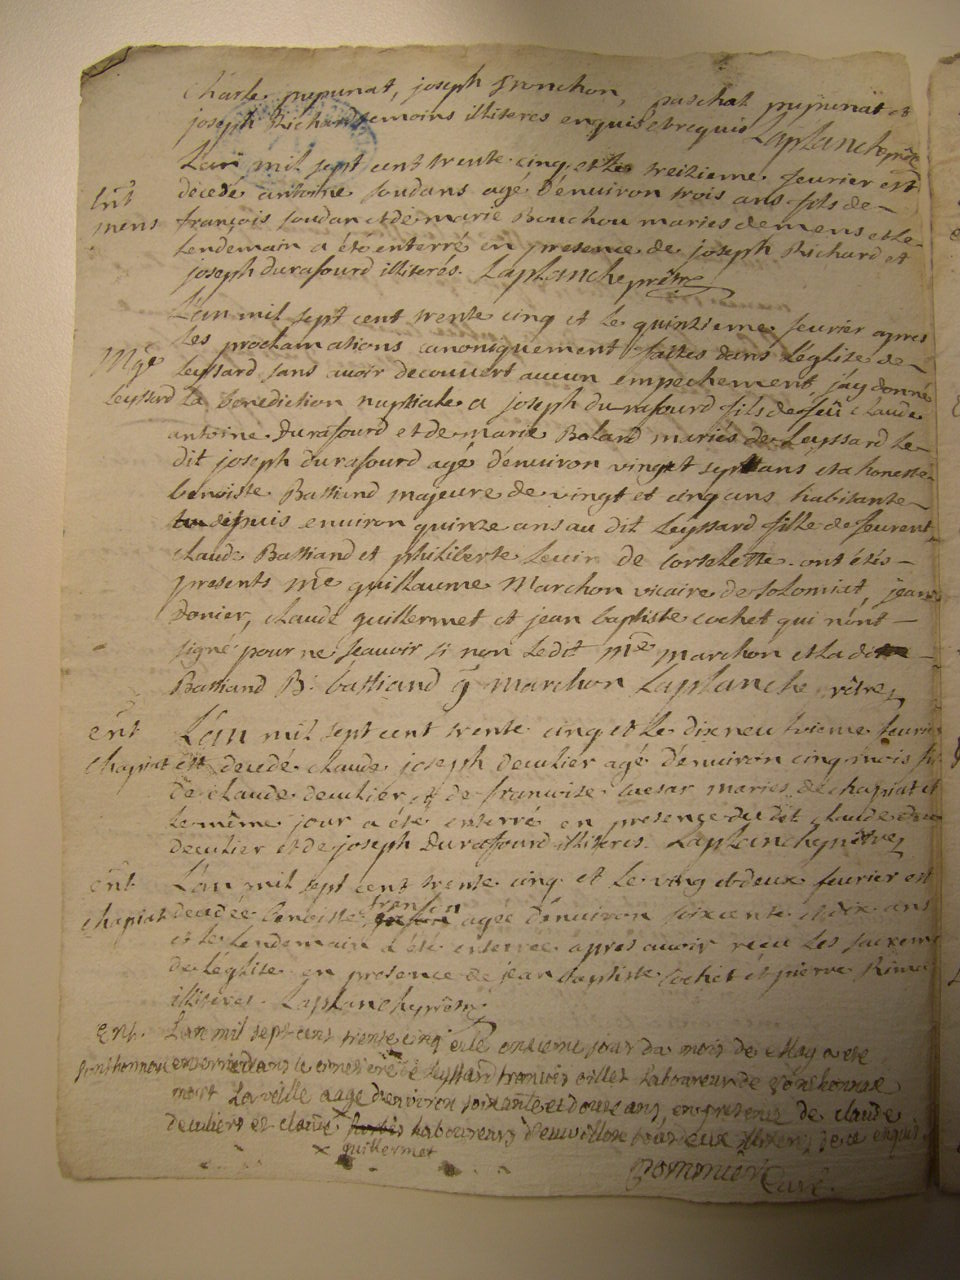 charle pupunat, joseph Tronchon, paschal pupunat et
joseph Richard temoins illiteres enquis et requis Laplanche ptre
L'an mil sept cent trente cinq et le treizieme feurier est
Ent decedé antoine soudans agé d'enuiron trois ans fils de
mens françois soudan et de marie Bouchou mariés de mens et le
lendemain a été enterré en presence de joseph Richard et
joseph durafourd illiterés. Laplanche prêtre
L'an mil sept cent trente cinq et le quinzieme feurier apres
les proclamations canoniquement faites dans l'église de
Mge leyssard sans auoir decouuert aucun empechement j'ay donné
leyssard la benediction nuptiale a joseph durafourd fils de feû claude
antoine Durafourd et de marie Boland mariés de Leyssard le
dit joseph durafourd agé d'enuiron vingt et sept ans et a honeste
benoiste Bastiand majeure de vingt et cinq ans habitante
depuis enuiron quinze ans au dit Leyssard fille de feu
claude Bastiand et philiberte leuir de corselette ont étés
presents mre guillaume Marchon vicaire de solomiat, jean
donier, claude guillermet et jean baptiste cochet qui n'ont
signé pour ne scauoir si non ledit mre marchon et la dite
Bastiand B. bastiand g marchon Laplanche prêtre
ent L'an mil sept cent trente cinq et le dixneuuieme feurier
chapiat est decedé claude joseph deculier agé d'enuiron cinq mois fils
de claude deculier et de francoise caesar mariés de chapiat et
le même jour a été enterré en presence du dit claude
deculier et de joseph Durafourd illiteres. Laplanche prêtre
ent L'an mil sept cent trente cinq et le ving et deux feurier est
chapiat decedée benoiste agée d'enuiron soixente et dix ans
et le lendemain a été enterrée apres auoir reçu les sacrem
de l'église en presence de jean baptiste cochet et pierre Rime
illiteres. Laplanche prêtre
Ent. L'an mil sept cent trente cinq et le onzieme jour du mois de May a eté
enterré dans le cimetière de leyssard francois oillet laboureur de
mort la veille aagé d'enviren soixante et douze ans, en presence de claude
deculiers et claude laboureurs tous deux illiteres, de ce enquis
x guillermet
pommier Curé.